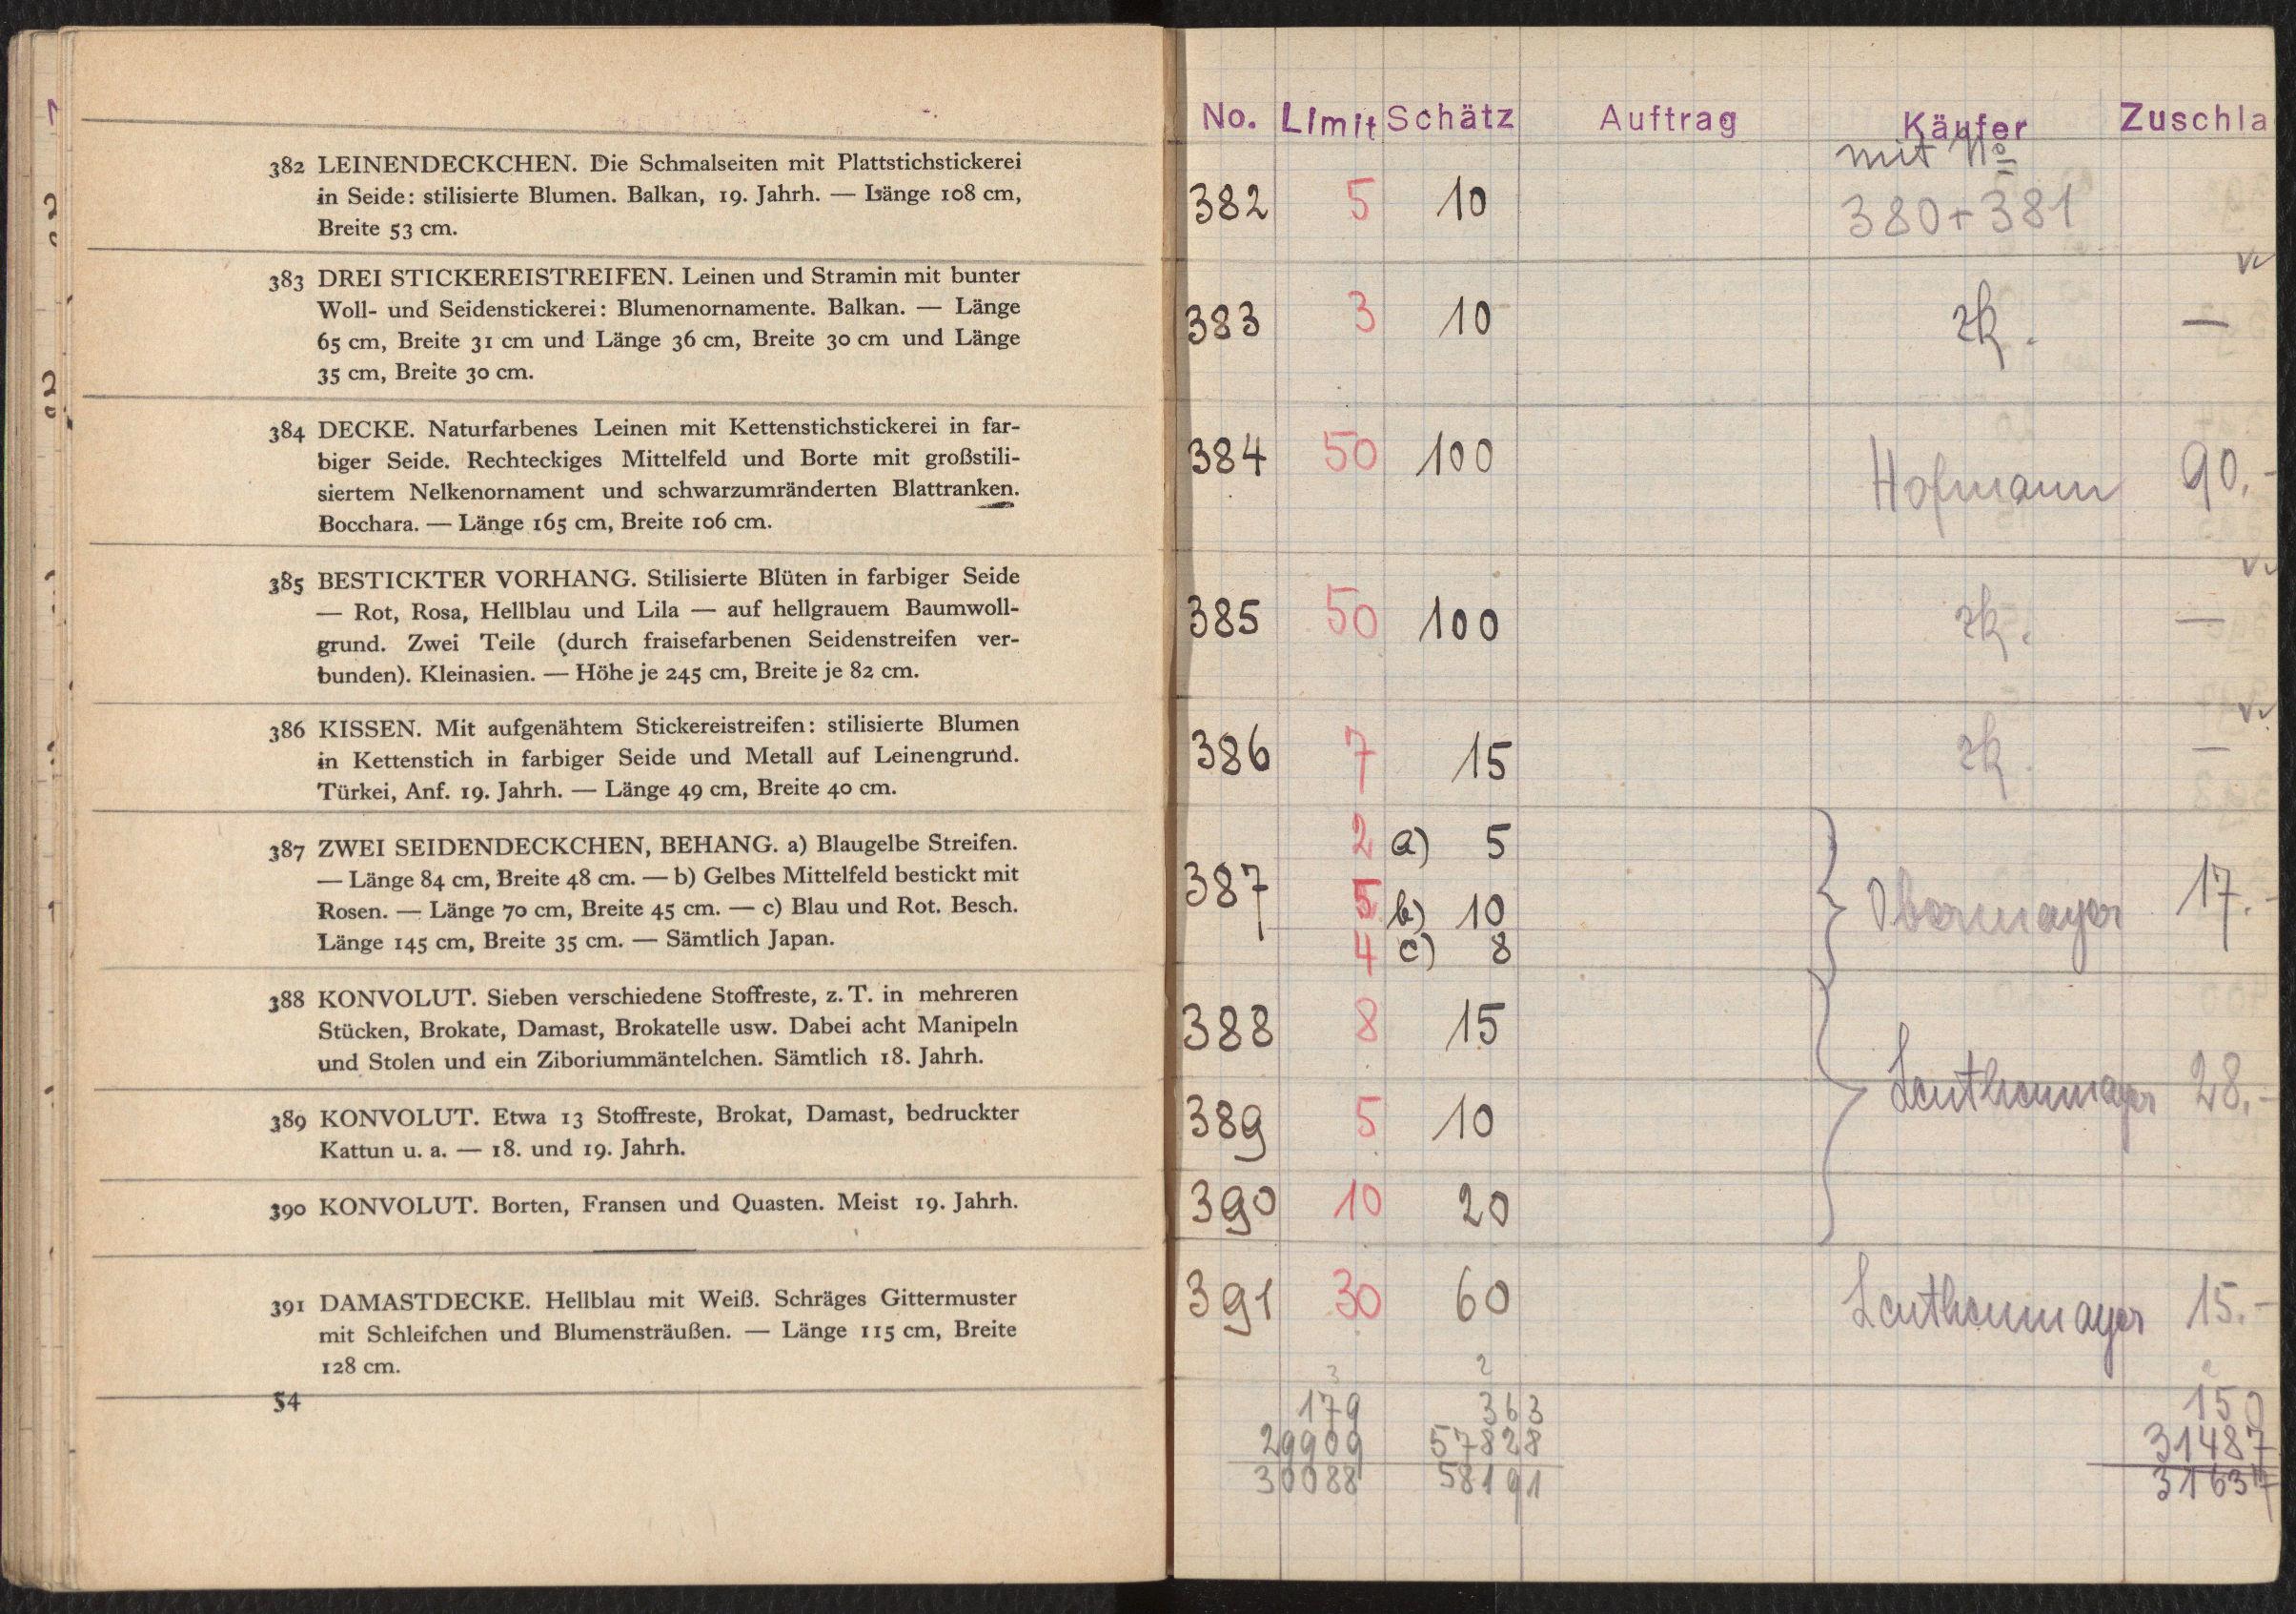 382 LEINENDECKCHEN. Die Schmalseiten mit Plattstichstickerei
in Seide: stilisierte Blumen. Balkan, 19. Jahrh. — Länge 108 cm,
Breite 53 cm.
383 DREI STICKEREISTREIFEN. Leinen und Stramin mit bunter
Woll- und Seidenstickerei: Blumenornamente. Balkan. — Länge
65 cm, Breite 31 cm und Länge 36 cm, Breite 30 cm und Länge
35 cm, Breite 30 cm.
384 DECKE. Naturfarbenes Leinen mit Kettenstichstickerei in far-
biger Seide. Rechteckiges Mittelfeld und Borte mit großstili-
siertem Nelkenornament und schwarzumränderten Blattranken.
Bocchara. — Länge 165 cm, Breite 106 cm.
385 BESTICKTER VORHANG. Stilisierte Blüten in farbiger Seide
— Rot, Rosa, Hellblau und Lila — auf hellgrauem Baumwoll-
grund. Zwei Teile (durch fraisefarbenen Seidenstreifen ver-
bunden). Kleinasien. — Höhe je 245 cm, Breite je 82 cm.
386 KISSEN. Mit aufgenähtem Stickereistreifen: stilisierte Blumen
in Kettenstich in farbiger Seide und Metall auf Leinengrund.
Türkei, Anf. 19. Jahrh. — Länge 49 cm, Breite 40 cm.
387 ZWEI SEIDENDECKCHEN, BEHANG. a) Blaugelbe Streifen.
— Länge 84 cm, Breite 48 cm. — b) Gelbes Mittelfeld bestickt mit
Rosen. — Länge 70 cm, Breite 45 cm. — c) Blau und Rot. Besch.
Länge 145 cm, Breite 35 cm. — Sämtlich Japan.
388 KONVOLUT. Sieben verschiedene Stoffreste, z. T. in mehreren
Stücken, Brokate, Damast, Brokatelle usw. Dabei acht Manipeln
und Stolen und ein Ziboriummäntelchen. Sämtlich 18. Jahrh.
389 KONVOLUT. Etwa 13 Stoffreste, Brokat, Damast, bedruckter
Kattun u. a. — 18. und 19. Jahrh.
390 KONVOLUT. Borten, Fransen und Quasten. Meist 19. Jahrh.
391 DAMASTDECKE. Hellblau mit Weiß. Schräges Gittermuster
mit Schleifchen und Blumensträußen. — Länge 115 cm, Breite
128 cm.
54
No. Limit Schätz Auftrag Käufer Zuschla
mit No
382 5 10 380+381
383 3 10 zk. —
384 50 100 Hofmann 90.-
385 50 100 zk. —
386 7 15 zk. —
2 a) 5
387 5 b) 10 Obermayer 17.-
4 c) 8
388 8 15
Lauthenmayer 28.-
389 5 10
390 10 20
391 30 60 Lauthenmayer 15.-
3 2 2
179 363 150
29909 57828 31487
30088 58191 31637